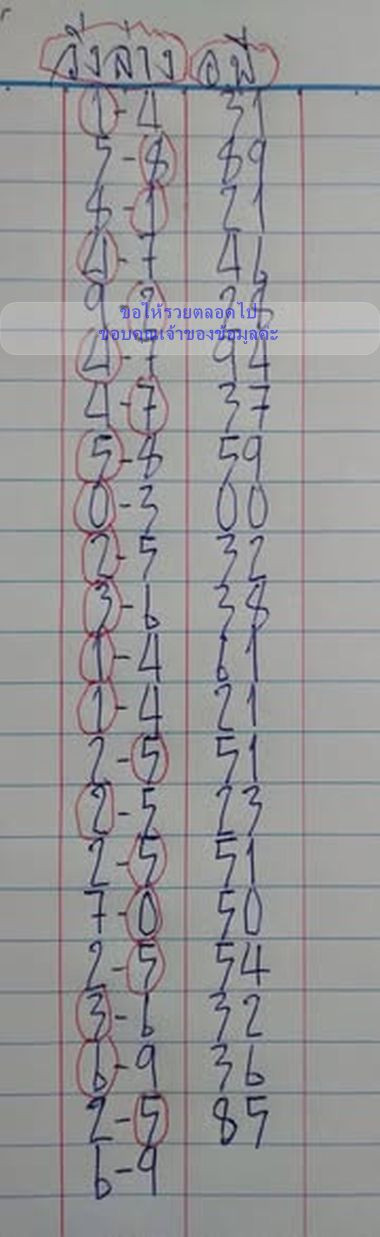 วิ่งล่าง อพี่
1-4 31
5-8 89
8-1 21
4-7 46
9-2 28
ขอให้รวยตลอดไป
ขอบคุณเจ้าของข้อมูลค่ะ
4-7 94
4-7 37
5-8 59
0-3 00
2-5 32
3-6 38
1-4 61
1-4 21
2-5 51
2-5 23
2-5 51
7-0 50
2-5 54
3-6 32
6-9 36
2-5 85
6-9